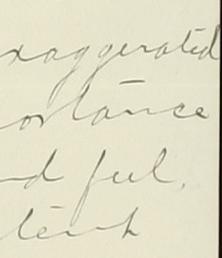 xaggerated
ortance
nd feel,
tent